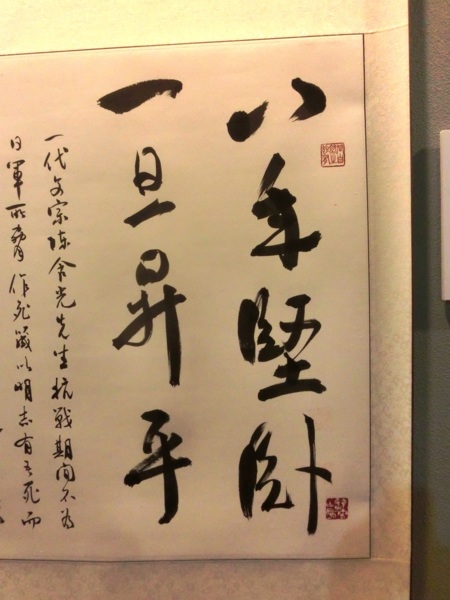 八年堅卧
一旦昇平
一代文宗陈含光先生抗戰期间不为
日軍所脅作死箴以明志有吾死而